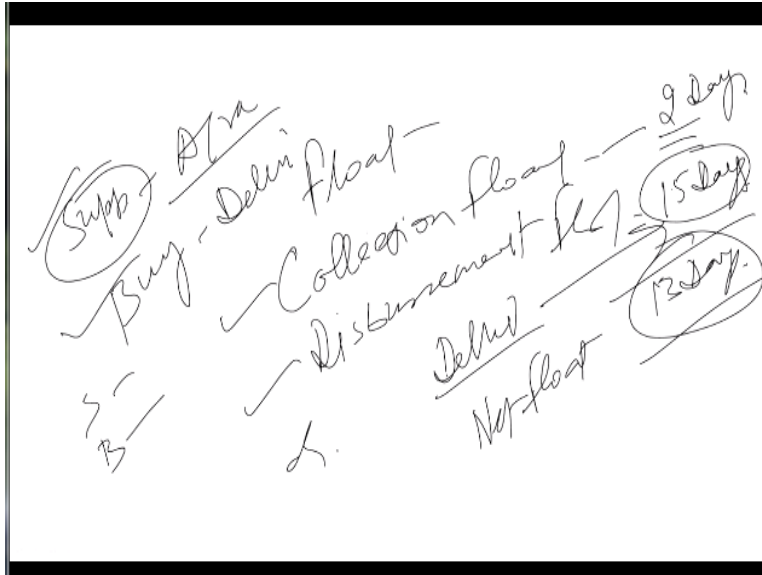 Supp - Agra
Buy - Delhi float -
Collection float - 2 Day
Disbursement flot - 15 Day
Delhi
Net float 13 Day.
S -
B -